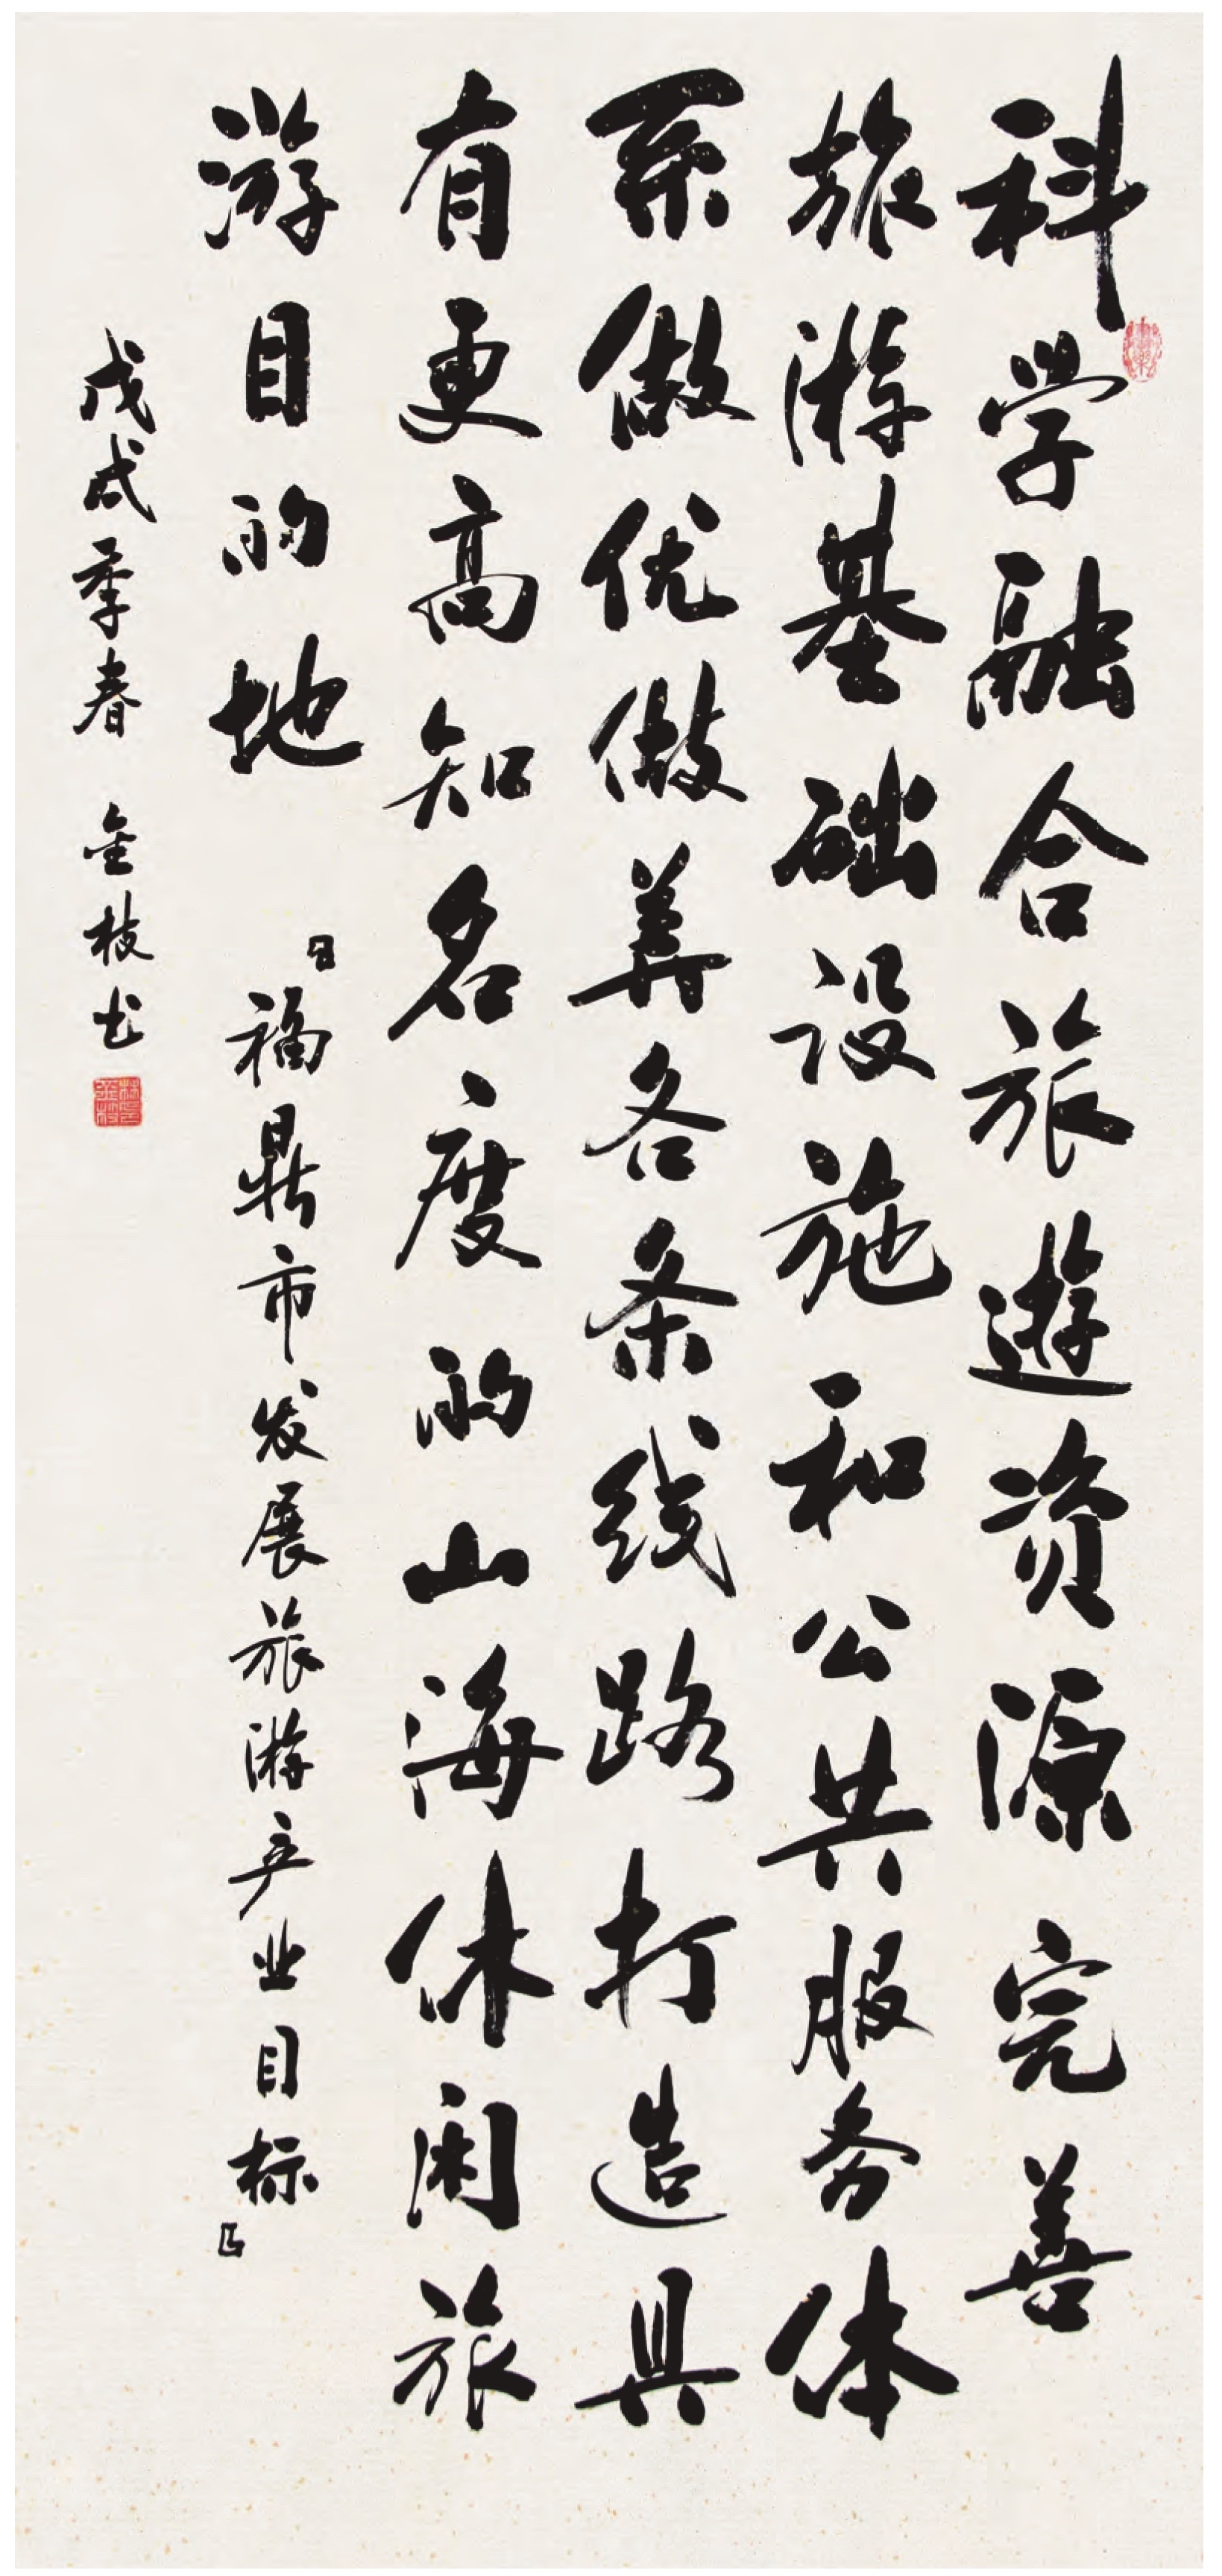 科学融合旅遊资源完善
旅游基础设施和公共服务体
系做优做美各条线路打造具
有更高知名度的山海休闲旅
游目的地
﹃福鼎市发展旅游产业目标﹄
戊戌季春 金枝书